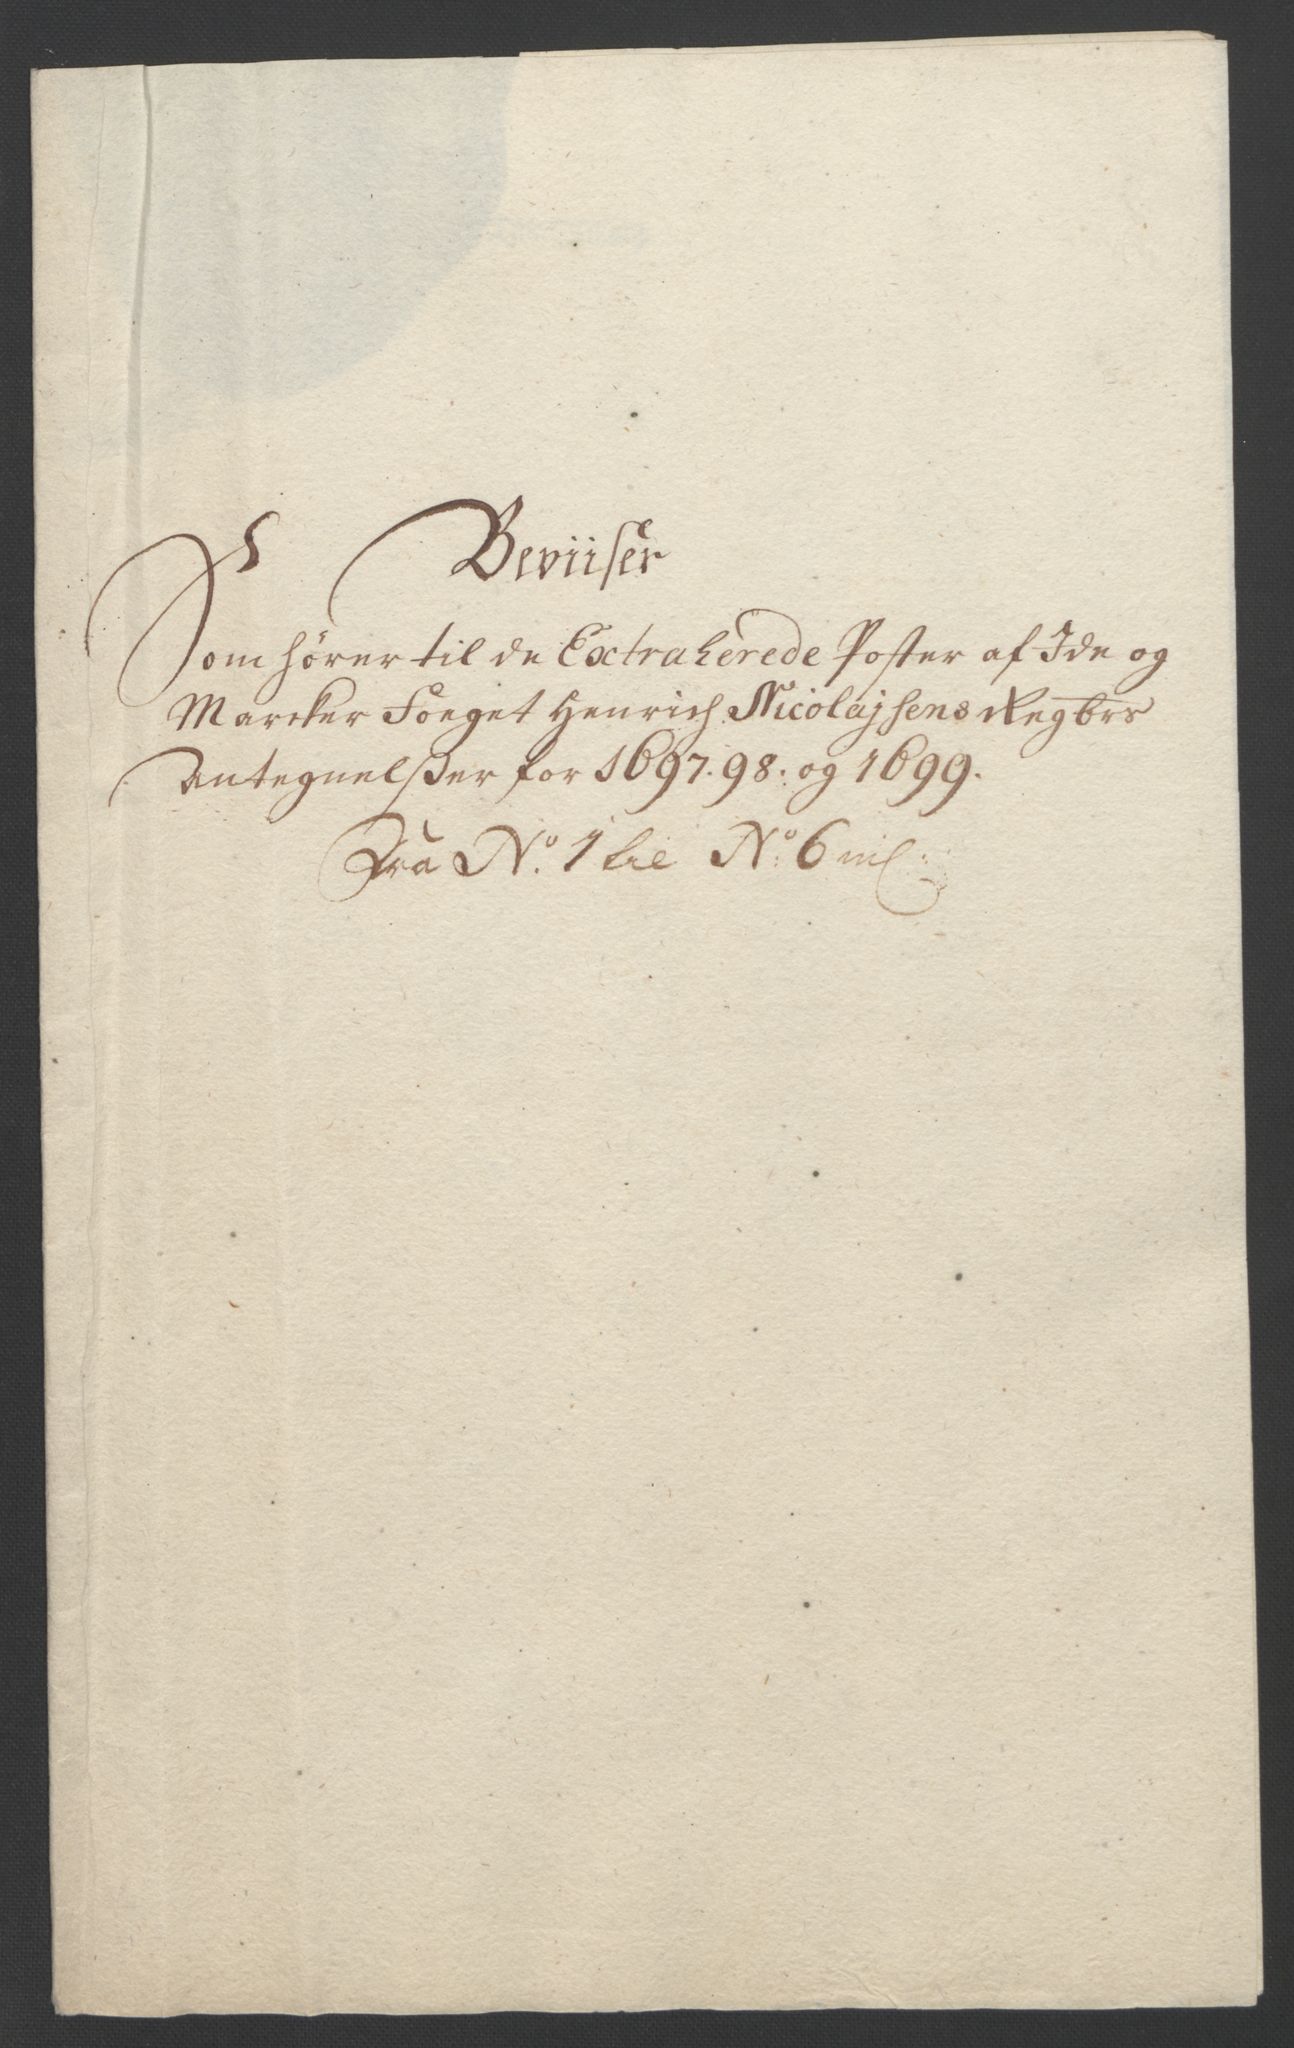 Beviiser
Som hörer til de Extraherede Poster af Ide og
Marcker Foeget Henrich Nicolajsens Regbrs
Antegnelsßer for 1697. 98. og 1699.
Fra No. 1 til No. 6 incl: